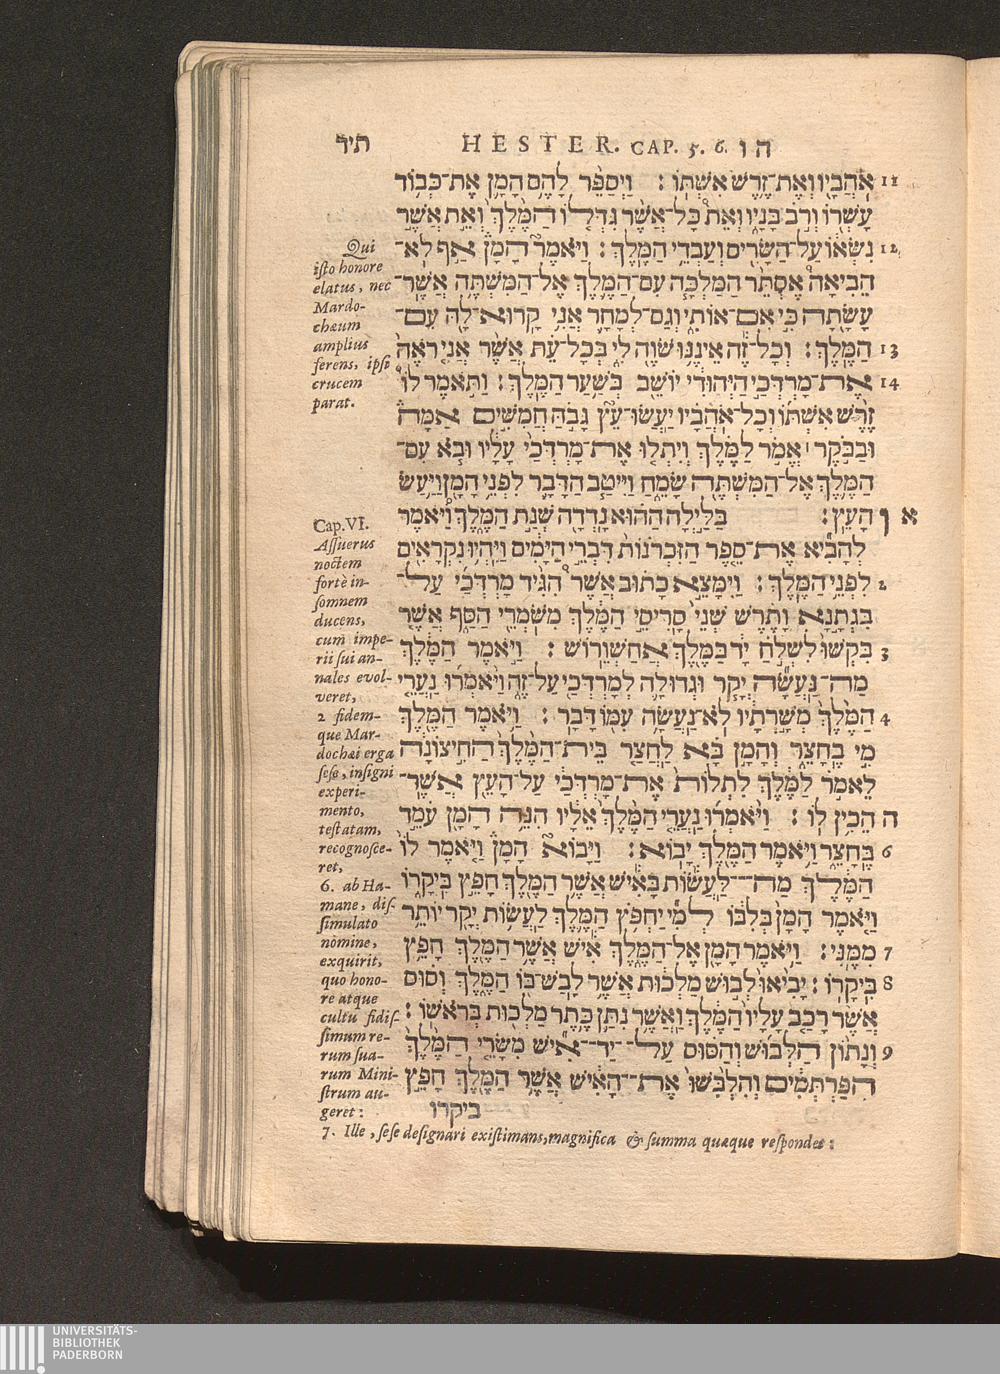 תיד HESTER. CAP. 5. 6. ה ו
אֹהֲבָיו וְאֶת־זֶרֶשׁ אִשְׁתּוֹ: וַיְסַפֵּר לָהֶם הָמָן אֶת־כְּבוֹד 11
עָשְׁרוֹ וְרֹב בָּנָיו וְאֵת כָּל־אֲשֶׁר גִּדְּלוֹ הַמֶּלֶךְ וְאֵת אֲשֶׁר
נִשְּׂאוֹ עַל־הַשָּׂרִים וְעַבְדֵי הַמֶּלֶךְ: וַיֹּאמֶר הָמָן אַף לֹא־ 12
הֵבִיאָה אֶסְתֵּר הַמַּלְכָּה עִם־הַמֶּלֶךְ אֶל־הַמִּשְׁתֶּה אֲשֶׁר־
עָשָׂתָה כִּי אִם־אוֹתִי וְגַם־לְמָחָר אֲנִי קָרוּא־לָהּ עִם־
הַמֶּלֶךְ: וְכָל־זֶה אֵינֶנּוּ שֹׁוֶה לִי בְּכָל־עֵת אֲשֶׁר אֲנִי רֹאֶה 13
אֶת־מָרְדְּכַי הַיְּהוּדִי יוֹשֵׁב בְּשַׁעַר הַמֶּלֶךְ: וַתֹּאמֶר לוֹ 14
זֶרֶשׁ אִשְׁתּוֹ וְכָל־אֹהֲבָיו יַעֲשׂוּ־עֵץ גָּבֹהַּ חֲמִשִּׁים אַמָּה
וּבַבֹּקֶר ׀ אֱמֹר לַמֶּלֶךְ וְיִתְלוּ אֶת־מָרְדְּכַי עָלָיו וּבֹא עִם־
הַמֶּלֶךְ אֶל־הַמִּשְׁתֶּה שָׂמֵחַ וַיִּיטַב הַדָּבָר לִפְנֵי הָמָן וַיַּעַשׂ
הָעֵץ: בַּלַּיְלָה הַהוּא נָדְדָה שְׁנַת הַמֶּלֶךְ וַיֹּאמֶר ו א
לְהָבִיא אֶת־סֵפֶר הַזִּכְרֹנוֹת דִּבְרֵי הַיָּמִים וַיִּהְיוּ נִקְרָאִים
לִפְנֵי הַמֶּלֶךְ: וַיִּמָּצֵא כָתוּב אֲשֶׁר הִגִּיד מָרְדְּכַי עַל־ 2
בִּגְתָנָא וָתֶרֶשׁ שְׁנֵי סָרִיסֵי הַמֶּלֶךְ מִשֹּׁמְרֵי הַסַּף אֲשֶׁר
בִּקְשׁוּ לִשְׁלֹחַ יָד בַּמֶּלֶךְ אֲחַשְׁוֵרוֹשׁ: וַיֹּאמֶר הַמֶּלֶךְ 3
מַה־נַּעֲשָׂה יְקָר וּגְדוּלָּה לְמָרְדְּכַי עַל־זֶה וַיֹּאמְרוּ נַעֲרֵי
הַמֶּלֶךְ מְשָׁרְתָיו לֹא־נַעֲשָׂה עִמּוֹ דָּבָר: וַיֹּאמֶר הַמֶּלֶךְ 4
מִי בֶחָצֵר וְהָמָן בָּא לַחֲצַר בֵּית־הַמֶּלֶךְ הַחִיצוֹנָה
לֵאמֹר לַמֶּלֶךְ לִתְלוֹת אֶת־מָרְדְּכַי עַל־הָעֵץ אֲשֶׁר־
הֵכִין לוֹ: וַיֹּאמְרוּ נַעֲרֵי הַמֶּלֶךְ אֵלָיו הִנֵּה הָמָן עֹמֵד ה
בֶּחָצֵר וַיֹּאמֶר הַמֶּלֶךְ יָבוֹא: וַיָּבוֹא הָמָן וַיֹּאמֶר לוֹ 6
הַמֶּלֶךְ מַה־לַּעֲשׂוֹת בָּאִישׁ אֲשֶׁר הַמֶּלֶךְ חָפֵץ בִּיקָרוֹ
וַיֹּאמֶר הָמָן בְּלִבּוֹ לְמִי יַחְפֹּץ הַמֶּלֶךְ לַעֲשׂוֹת יְקָר יוֹתֵר
מִמֶּנִּי: וַיֹּאמֶר הָמָן אֶל־הַמֶּלֶךְ אִישׁ אֲשֶׁר הַמֶּלֶךְ חָפֵץ 7
בִּיקָרוֹ: יָבִיאוּ לְבוּשׁ מַלְכוּת אֲשֶׁר לָבַשׁ־בּוֹ הַמֶּלֶךְ וְסוּס 8
אֲשֶׁר רָכַב עָלָיו הַמֶּלֶךְ וַאֲשֶׁר נִתַּן כֶּתֶר מַלְכוּת בְּרֹאשׁוֹ:
וְנָתוֹן הַלְּבוּשׁ וְהַסּוּס עַל־יַד־אִישׁ מִשָּׂרֵי הַמֶּלֶךְ 9
הַפַּרְתְּמִים וְהִלְבִּשׁוּ אֶת־הָאִישׁ אֲשֶׁר הַמֶּלֶךְ חָפֵץ
ביקרו
Qui
isto honore
elatus, nec
Mardo-
chæum
amplius
ferens, ipse
crucem
parat.
Cap. VI.
Assuerus
noctem
fortè in-
somnem
ducens,
cum impe-
rii sui an-
nales evol-
veret,
2 fidem-
que Mar-
dochæi erga
sese, insigni
experi-
mento,
testatam,
recognosce-
ret,
6. ab Ha-
mane, dis-
simulato
nomine,
exquirit,
quo hono-
re atque
cultu fidis-
simum re-
rum sua-
rum Mini-
strum au-
geret:
7. Ille, sese designari existimans, magnifica & summa quæque respondet:
UNIVERSITÄTS-
BIBLIOTHEK
PADERBORN